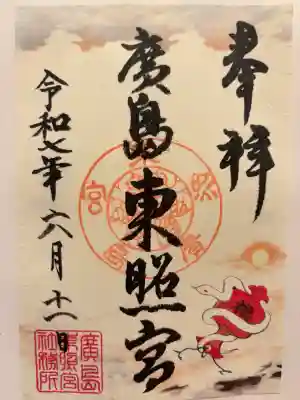 奉拝
廣島東照宮
令和七年六月十一日
廣島
東照宮
社務所